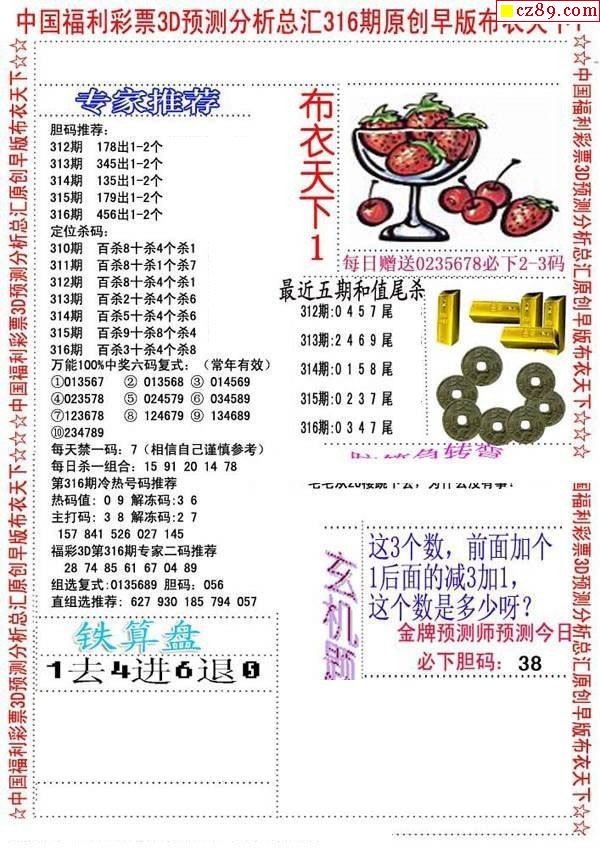 cz89.com
中国福利彩票3D预测分析总汇316期原创早版布衣天下
☆☆中国福利彩票3D预测分析总汇原创早版布衣天下☆☆
专家推荐
胆码推荐:
312期 178出1-2个
313期 345出1-2个
314期 135出1-2个
315期 179出1-2个
316期 456出1-2个
定位杀码:
310期 百杀8十杀4个杀1
311期 百杀8十杀1个杀7
312期 百杀8十杀4个杀1
313期 百杀2十杀4个杀6
314期 百杀5十杀4个杀6
315期 百杀9十杀8个杀4
316期 百杀3十杀4个杀8
万能100%中奖六码复式:(常年有效)
①013567 ②013568 ③014569
④023578 ⑤024579 ⑥034589
⑦123678 ⑧124679 ⑨134689
⑩234789
每天禁一码: 7(相信自己谨慎参考)
每日杀一组合: 15 91 20 14 78
第316期冷热号码推荐
热码值: 0 9 解冻码:3 6
主打码: 3 8 解冻码:2 7
157 841 526 027 145
福彩3D第316期专家二码推荐
28 74 85 61 67 04 89
组选复式:0135689 胆码: 056
直组选推荐: 627 930 185 794 057
铁算盘
1去4进6退0
布衣天下1
每日赠送0235678必下2-3码
最近五期和值尾杀
312期:0 4 5 7 尾
313期:2 4 6 9 尾
314期:0 1 5 8 尾
315期:0 2 3 7 尾
316期:0 3 4 7 尾
脑筋急转弯
毛毛从20楼跳下去,为什么没有事?
玄机题
这3个数,前面加个
1后面的减3加1,
这个数是多少呀?
金牌预测师预测今日
必下胆码: 38
☆☆中国福利彩票3D预测分析总汇原创早版布衣天下☆☆